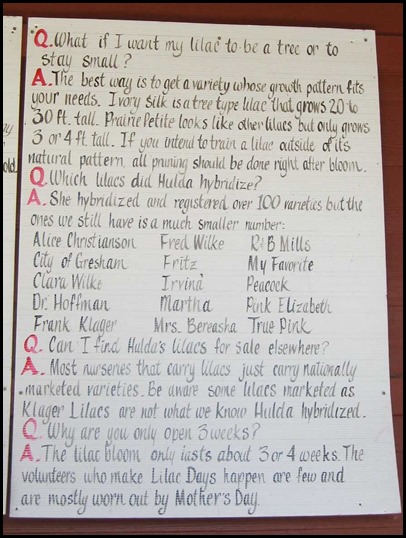 Q. What if I want my lilac to be a tree or to
stay small?
A. The best way is to get a variety whose growth pattern fits
your needs. Ivory Silk is a tree type lilac that grows 20 to
30 ft. tall. Prairie Petite looks like other lilacs but only grows
3 or 4 ft tall. If you intend to train a lilac outside of its
natural pattern all pruning should be done right after bloom.
Q. Which lilacs did Hulda hybridize?
A. She hybridized and registered over 100 varieties but the
ones we still have is a much smaller number:
Alice Christianson Fred Wilke R&B Mills
City of Gresham Fritz My Favorite
Clara Wilke Irvina Peacock
Dr. Hoffman Martha Pink Elizabeth
Frank Klager Mrs. Bereasha True Pink
Q. Can I find Hulda's lilacs for sale elsewhere?
A. Most nurseries that carry lilacs just carry nationally
marketed varieties. Be aware some lilacs marketed as
Klager Lilacs are not what we know Hulda hybridized.
Q. Why are you only open 3 weeks?
A. The lilac bloom only lasts about 3 or 4 weeks. The
volunteers who make Lilac Days happen are few and
are mostly worn out by Mother's Day.